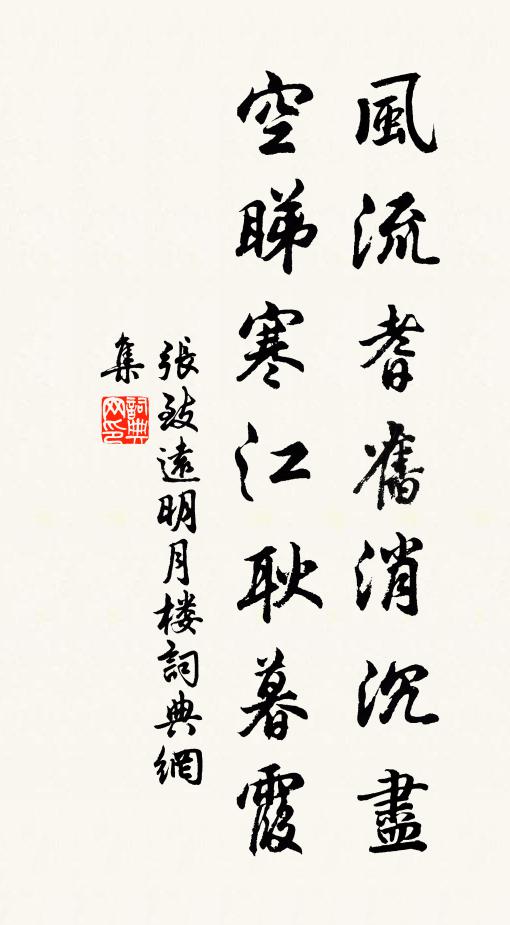 風流耆舊消沉盡
空睇寒江耿暮霞
張致遠明月楼詞典網
集
詞典网印